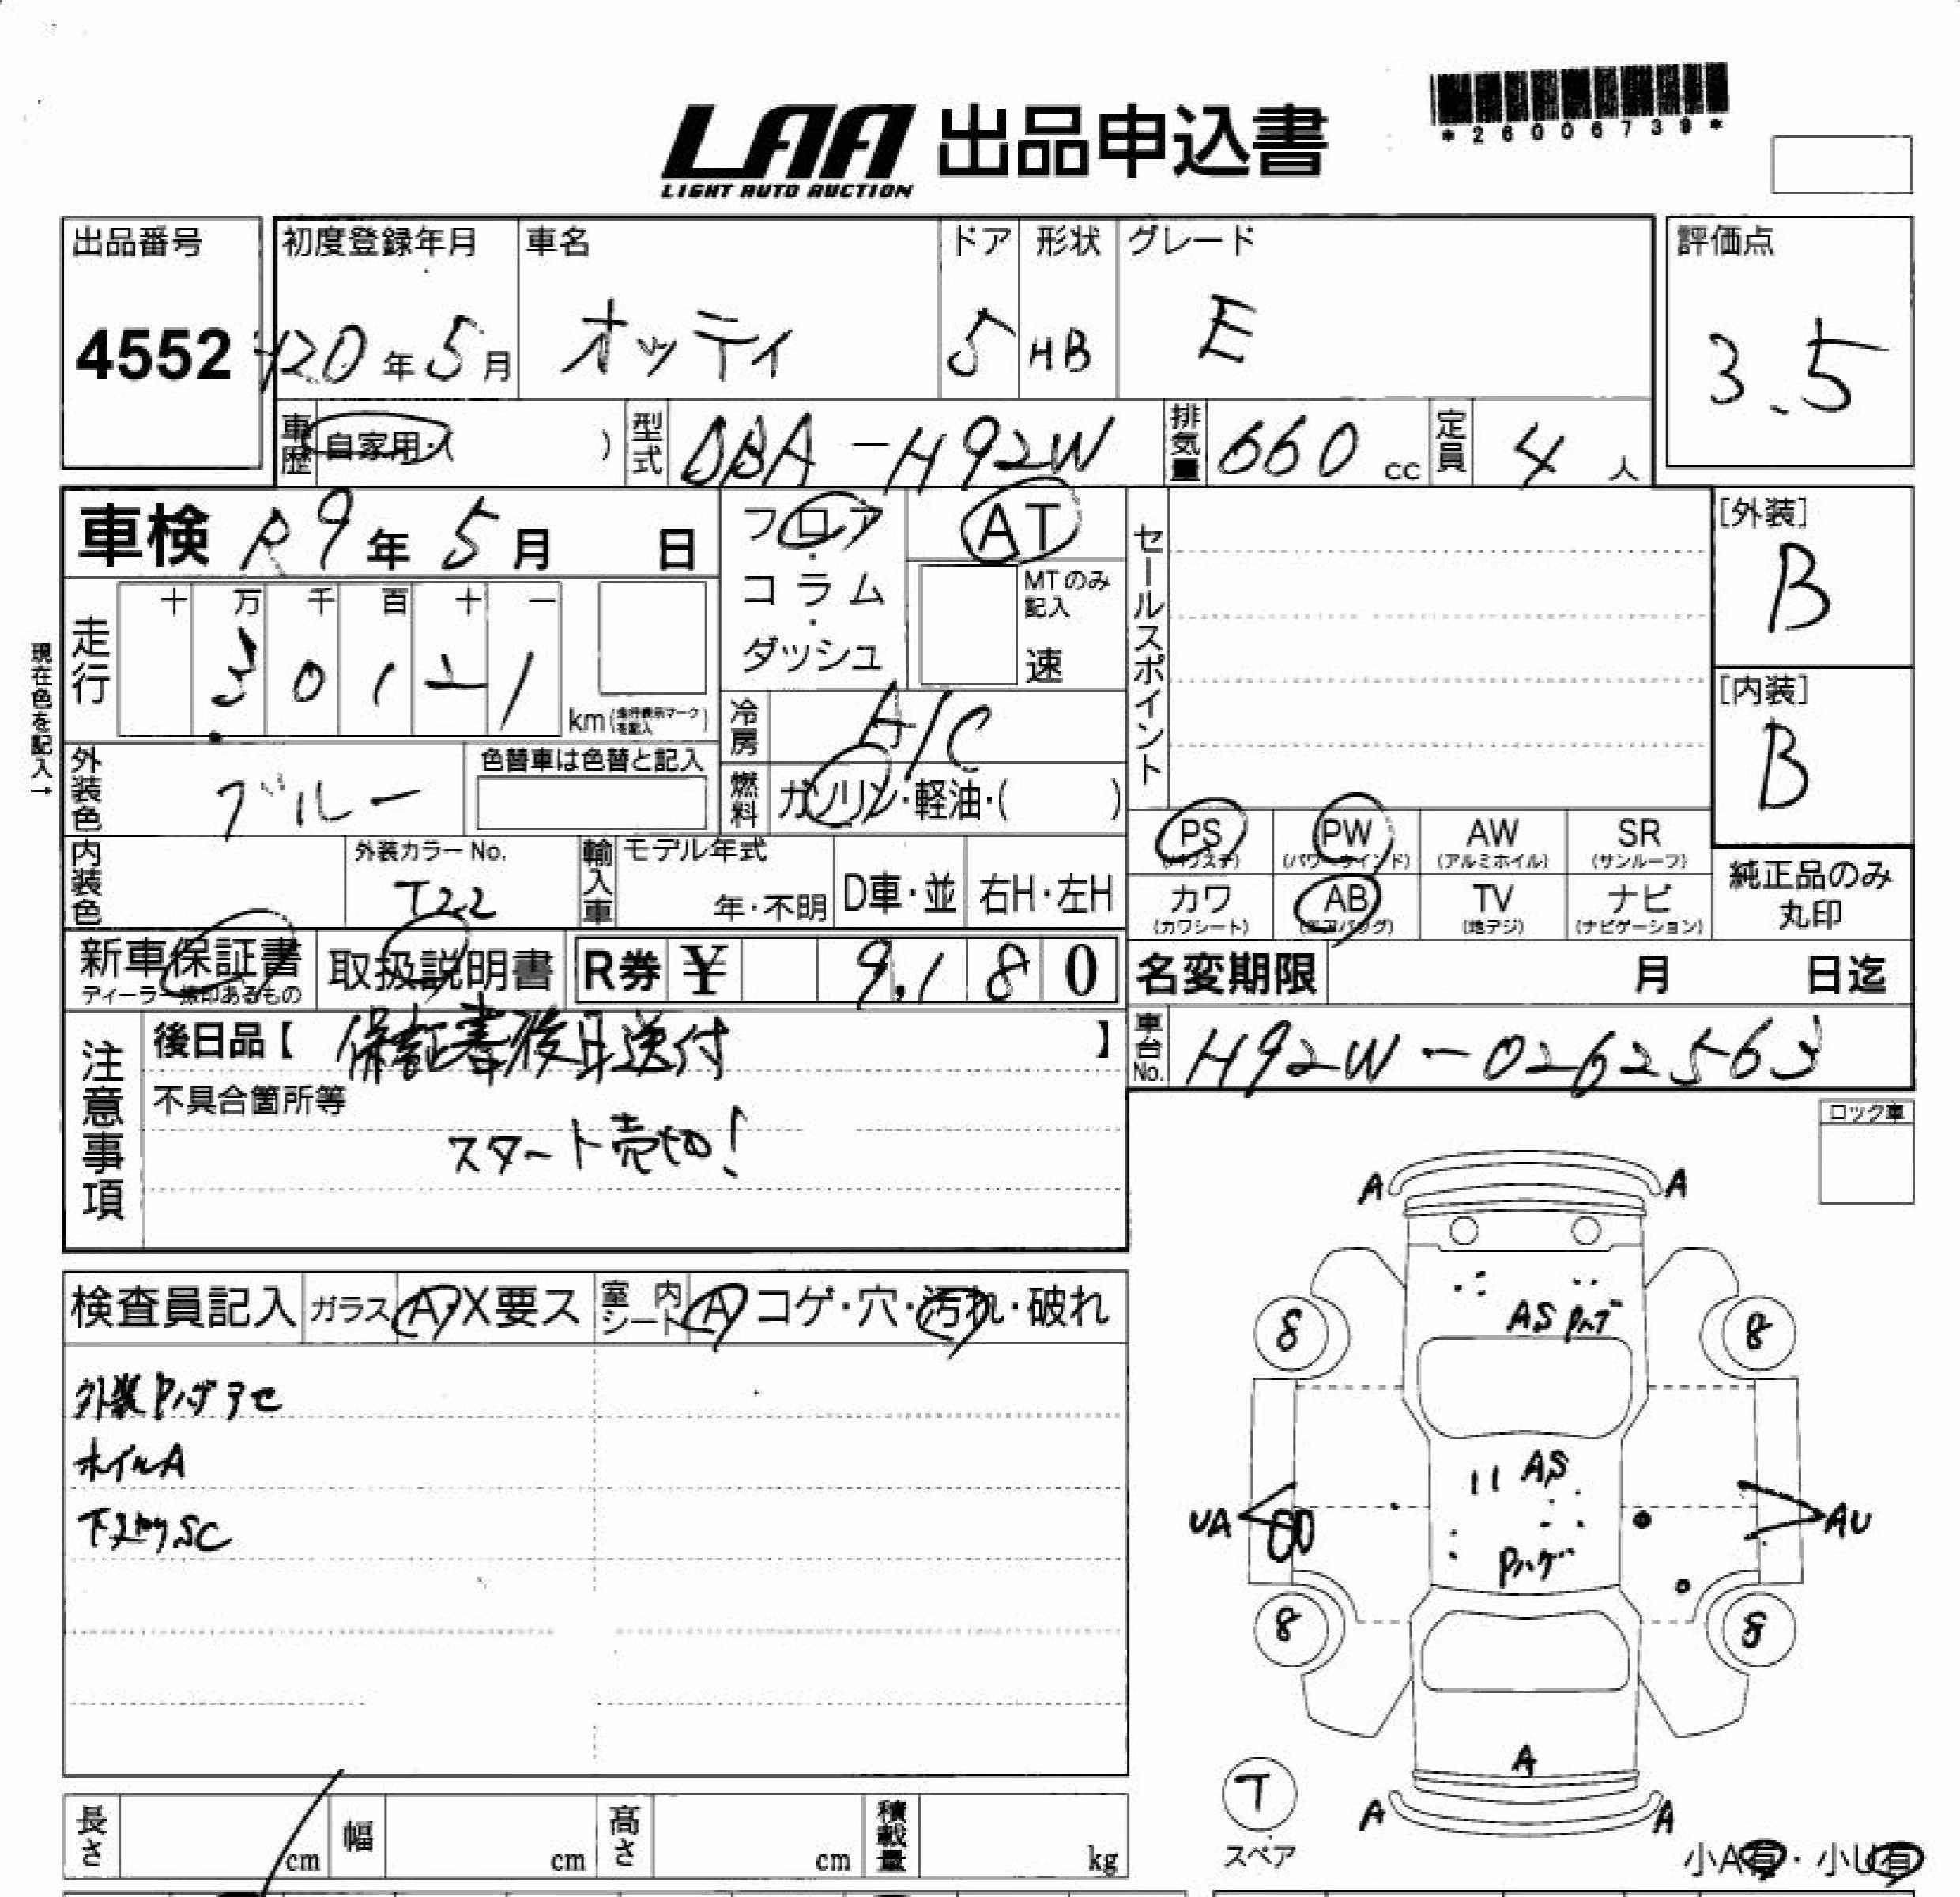 LAA 出品申込書
LIGHT AUTO AUCTION
*26006739*
出品番号 初度登録年月 車名 ドア 形状 グレード 評価点
4552 H20年5月 オッティ 5 HB E 3.5
車歴 自家用・( ) 型式 DBA-H92W 排気量 660 cc 定員 4人
車検 R9年5月 日
フロア・コラム・ダッシュ
AT
MTのみ記入
速
セールスポイント
[外装]
B
[内装]
B
現在色を記入→
走行 十 万 千 百 十 一
30121 km (走行表示マークを記入)
冷房 A/C
外装色 ブルー 色替車は色替と記入
燃料 ガソリン・軽油・( )
PS PW AW SR
(パワステ) (パワーウインド) (アルミホイル) (サンルーフ)
カワ AB TV ナビ
(カワシート) (エアバッグ) (地デジ) (ナビゲーション)
純正品のみ
丸印
内装色 外装カラーNo. T22
輸入車 モデル年式 年・不明 D車・並 右H・左H
新車保証書 取扱説明書 R券 ¥ 9,180
名変期限 月 日迄
車台No. H92W-0262563
注意事項
後日品【 保証書後日送付 】
不具合箇所等
スタート売切!
ロック車
検査員記入 ガラス A・X要ス 室内シート A コゲ・穴・汚れ・破れ
外装Pハゲアセ
ホイルA
下廻りSC
A A
AS Pハゲ
8 8
AS
UA AU
Pハゲ
8 8
A
T
A A
スペア
小A有・小U有
長さ cm 幅 cm 高さ cm 積載量 kg